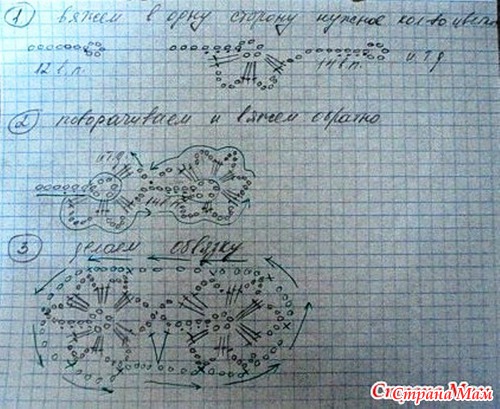 1 вяжем в одну сторону нужное кол-во цветов
12 в.п. 14 в.п. и.т.д
2 поворачиваем и вяжем обратно
и.т.д
14 в.п.
3 делаем обвязку
СтранаМам